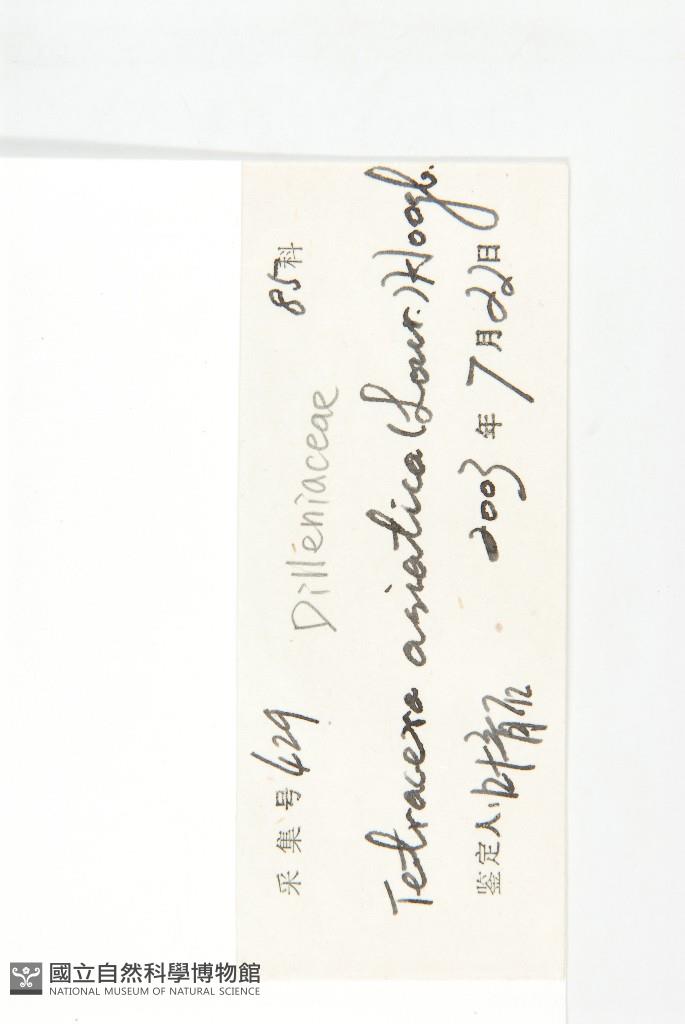 采集号 429 85科
Dilleniaceae
Tetracera asiatica (Lour.) Hoogl.
鉴定人: 叶育石 2003年7月22日
國立自然科學博物館
NATIONAL MUSEUM OF NATURAL SCIENCE